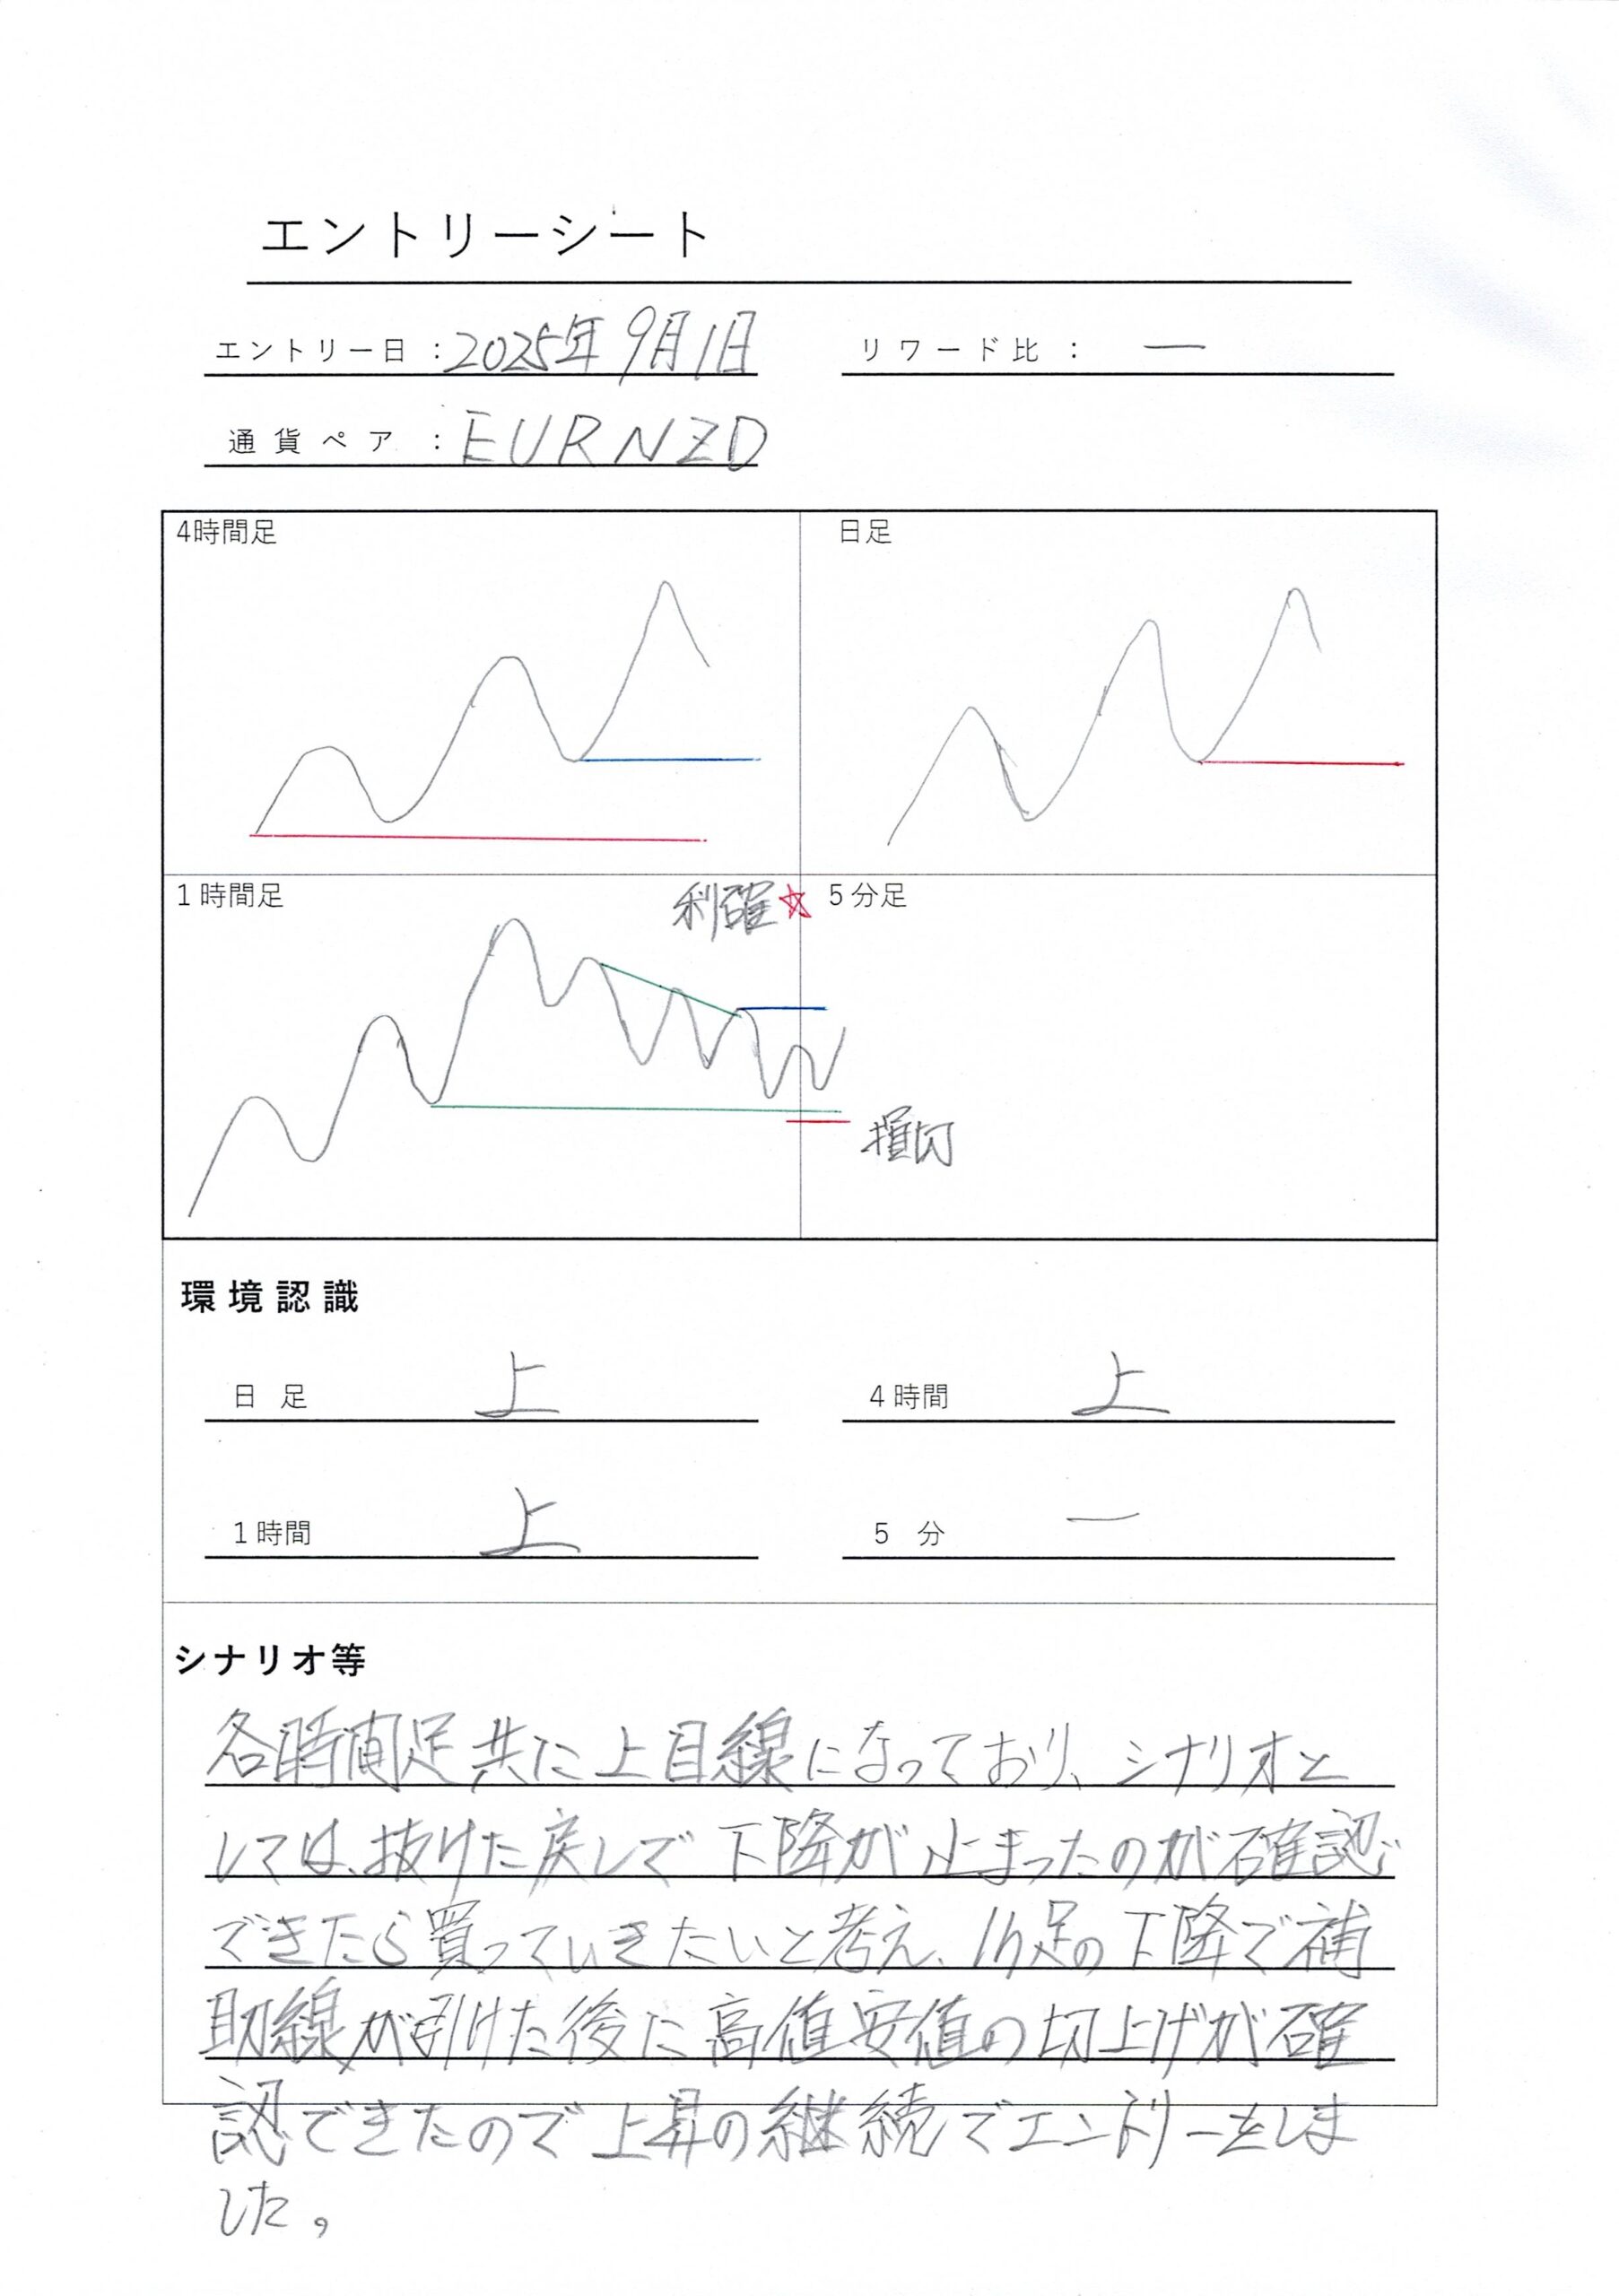 エントリーシート
エントリー日：2025年9月1日
リワード比：ー
通貨ペア：EURNZD
4時間足
日足
1時間足
利確
5分足
損切
環境認識
日足 上
4時間 上
1時間 上
5分 ー
シナリオ等
各時間足共に上目線になっており、シナリオと
しては、抜けた戻しで下降が止まったのが確認
できたら買っていきたいと考え、1h足の下降で補
助線が引けた後に高値安値の切上げが確
認できたので上昇の継続でエントリーをしま
した。